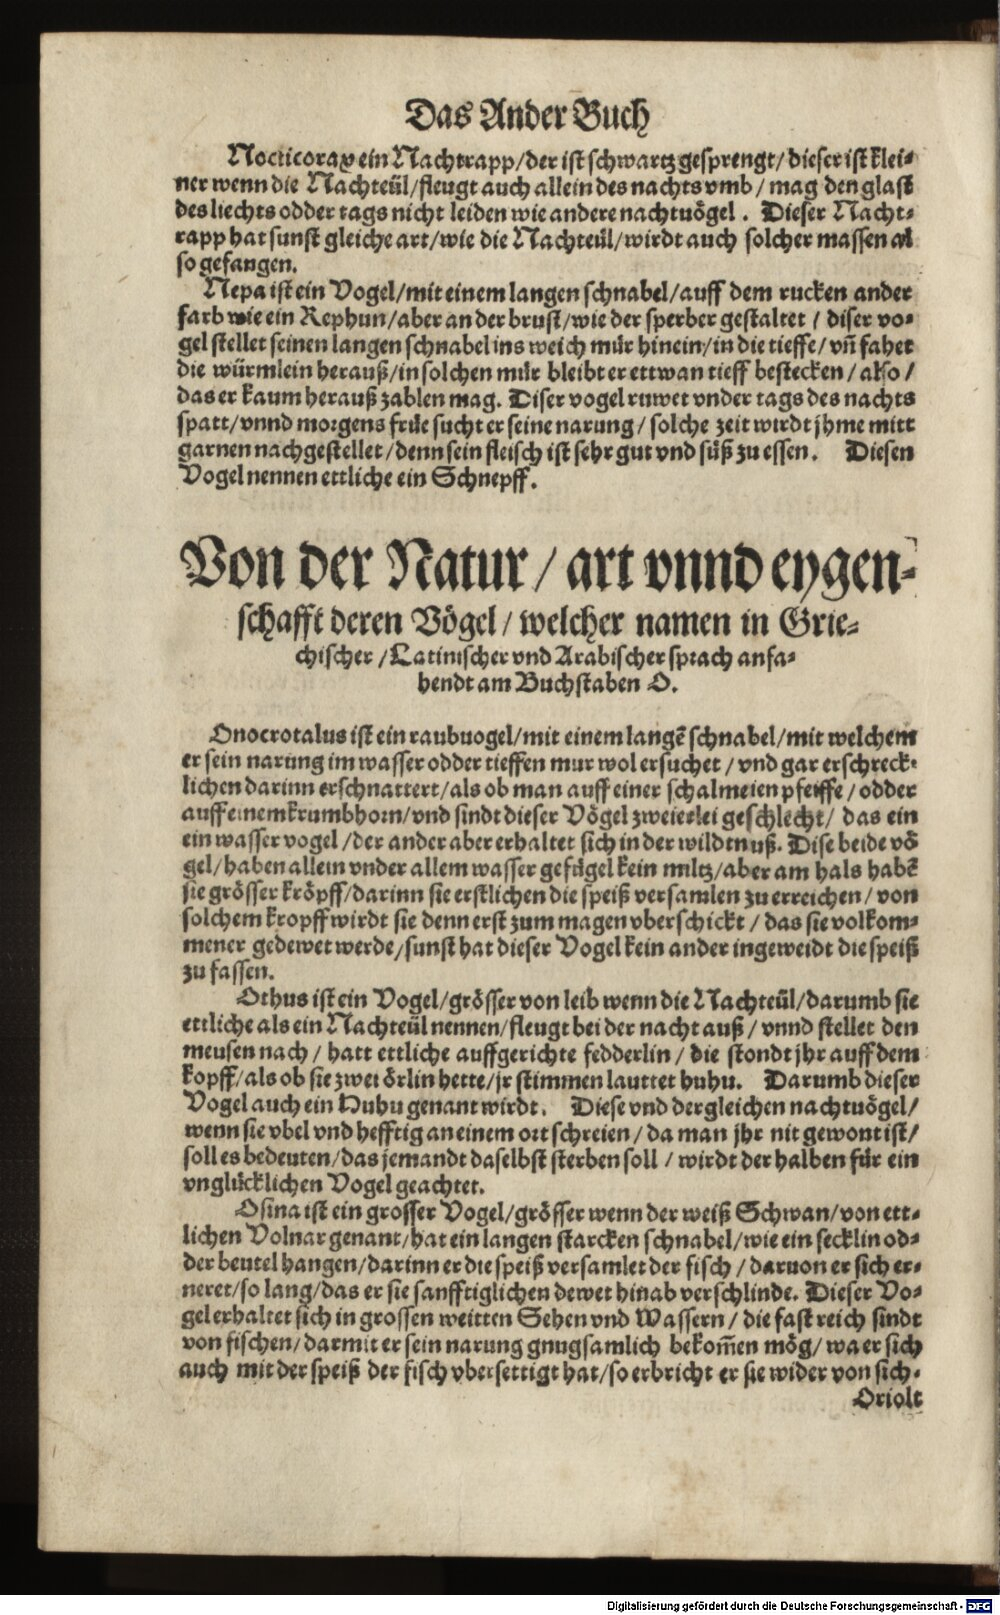 Das Ander Buch
Nocticorax ein Nachtrapp/der ist schwartz gesprengt/dieser ist klei-
ner wenn die Nachteül/fleugt auch allein des nachts vmb/mag den glast
des liechts odder tags nicht leiden wie andere nachtuögel. Dieser Nacht-
rapp hat sunst gleiche art/wie die Nachteül/wirdt auch solcher massen al
so gefangen.
Nepa ist ein Vogel/mit einem langen schnabel/auff dem rucken ander
farb wie ein Rephun/aber an der brust/wie der sperber gestaltet/diser vo-
gel stellet seinen langen schnabel ins weich mür hinein/in die tieffe/vñ fahet
die würmlein herauß/in solchen mür bleibt er ettwan tieff bestecken/also/
das er kaum herauß zablen mag. Diser vogel ruwet vnder tags des nachts
spatt/vnnd morgens früe sucht er seine narung/solche zeit wirdt jhme mitt
garnen nachgestellet/denn sein fleisch ist sehr gut vnd süß zu essen. Diesen
Vogel nennen ettliche ein Schnepff.
Von der Natur/art vnnd eygen-
schafft deren Vögel/welcher namen in Grie-
chischer/Latinischer vnd Arabischer sprach anfa-
hendt am Buchstaben O.
Onocrotalus ist ein raubuogel/mit einem langẽ schnabel/mit welchem
er sein narung im wasser odder tieffen mur wol ersuchet/vnd gar erschreck-
lichen darinn erschnattert/als ob man auff einer schalmeien pfeiffe/odder
auff einem krumbhorn/vnd sindt dieser Vögel zweierlei geschlecht/das ein
ein wasser vogel/der ander aber erhaltet sich in der wildtnuß. Dise beide vö
gel/haben allein vnder allem wasser geflügel kein miltz/aber am hals habẽ
sie grösser kröpff/darinn sie erstlichen die speiß versamlen zu erreichen/von
solchem kropff wirdt sie denn erst zum magen vberschickt/das sie volkom-
mener gedewet werde/sunst hat dieser Vogel kein ander ingeweidt die speiß
zu fassen.
Othus ist ein Vogel/grösser von leib wenn die Nachteül/darumb sie
ettliche als ein Nachteül nennen/fleugt bei der nacht auß/vnnd stellet den
meusen nach/hatt ettliche auffgerichte fedderlin/die stondt jhr auff dem
kopff/als ob sie zwei örlin hette/jr stimmen lauttet huhu. Darumb dieser
Vogel auch ein Huhu genant wirdt. Diese vnd dergleichen nachtuögel/
wenn sie vbel vnd hefftig an einem ort schreien/da man jhr nit gewont ist/
soll es bedeuten/das jemandt daselbst sterben soll/wirdt der halben für ein
vnglücklichen Vogel geachtet.
Osina ist ein grosser Vogel/grösser wenn der weiß Schwan/von ett-
lichen Volnar genant/hat ein langen starcken schnabel/wie ein secklin od-
der beutel hangen/darinn er die speiß versamlet der fisch/daruon er sich er-
neret/so lang/das er sie sanfftiglichen dewet hinab verschlinde. Dieser Vo-
gel erhaltet sich in grossen weitten Sehen vnd Wassern/die fast reich sindt
von fischen/darmit er sein narung gnugsamlich bekom̃en mög/wa er sich
auch mit der speiß der fisch vbersettigt hat/so erbricht er sie wider von sich.
Oriolt
Digitalisierung gefördert durch die Deutsche Forschungsgemeinschaft - DFG